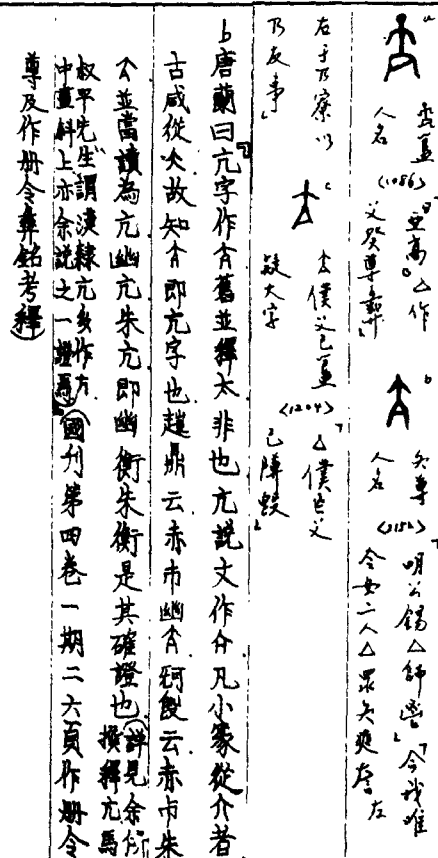 a
盉𥁰
人名
<1086>
「亞高△作
父癸尊彝」
b
矢尊
人名
<3152>
「明公錫△師鬯」「今我唯
令女二人△眔矢奭𠭯左
右于乃寮以
乃友事」
c
僕父己𥁰
<1204>
「△僕乍父
己障𣪘」
疑大字
b唐蘭曰「亢字作𠅃舊並釋太非也亢說文作亣凡小篆從亣者
古咸從大故知𠅃即亢字也趞鼎云赤巿幽𠅃𤔲𣪘云赤巿朱
𠅃並當讀為亢幽亢朱亢即幽衡朱衡是其確證也(詳見余所
撰釋亢馬
叔平先生謂漢隸亢多作亢
中畫斜上亦余說之一證焉)」(國刊第四卷一期二六頁作冊令
尊及作冊令彝銘考釋)